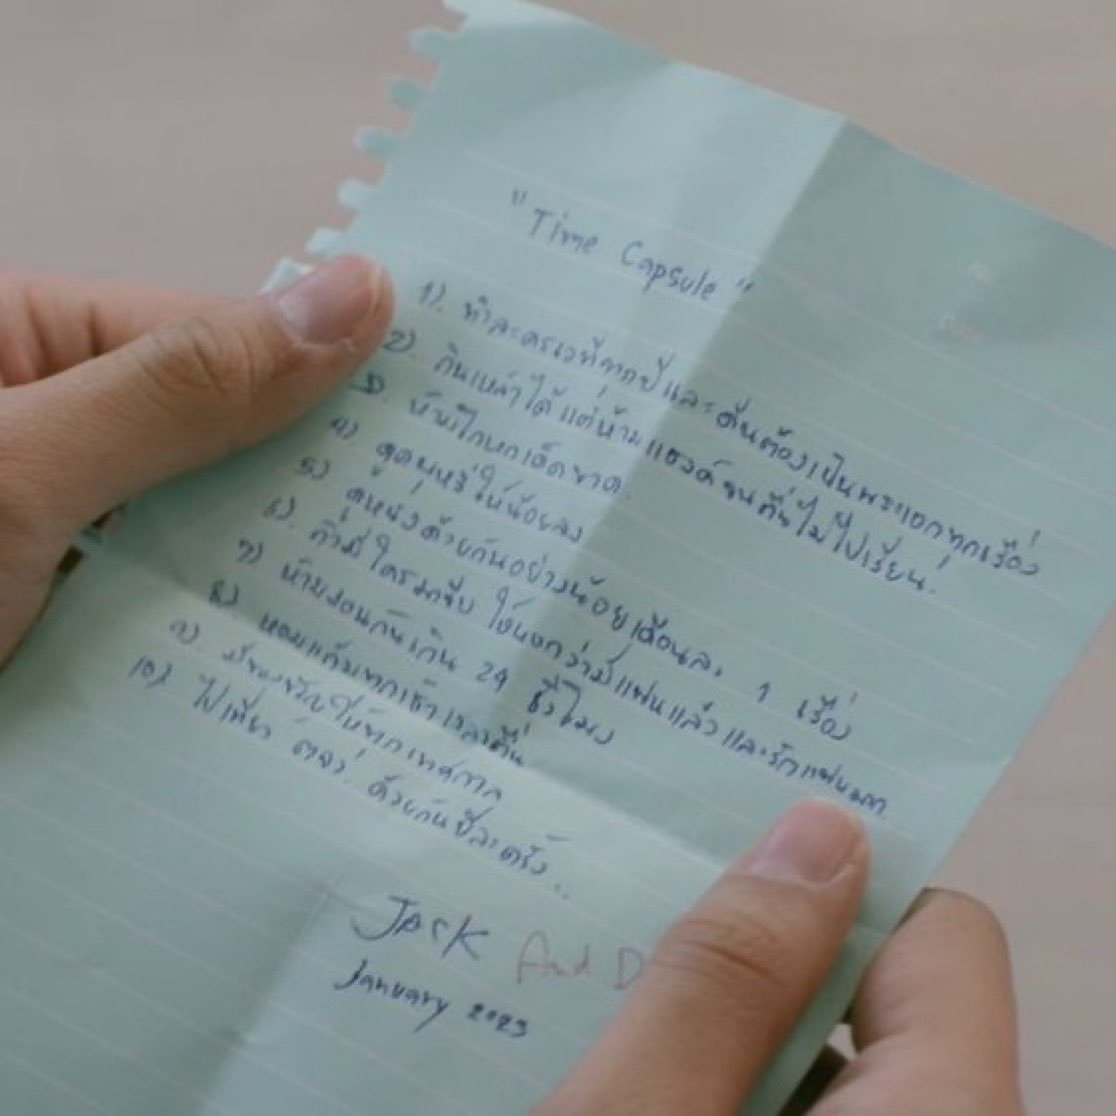 "Time Capsule"
1). ทำละครเวทีทุกปี และต้นต้องเป็นพระเอกทุกเรื่อง
2). กินเหล้าได้ แต่ห้ามแฮงค์จนตื่นไม่ไปเรียน.
3). ห้ามโกหกเด็ดขาด
4) ดูดบุหรี่ให้น้อยลง
5) ดูหนังด้วยกันอย่างน้อยเดือนละ 1 เรื่อง
6). ถ้ามีใครมาจีบ ให้บอกว่ามีแฟนแล้วและรักแฟนมาก
7) ห้ามงอนกันเกิน 24 ชั่วโมง
8) หอมแก้มทุกเช้าเวลาตื่น
9). มีของขวัญให้ทุกเทศกาล
10) ไปเที่ยว ตจว. ด้วยกันปีละครั้ง...
Jack And D
January 2023